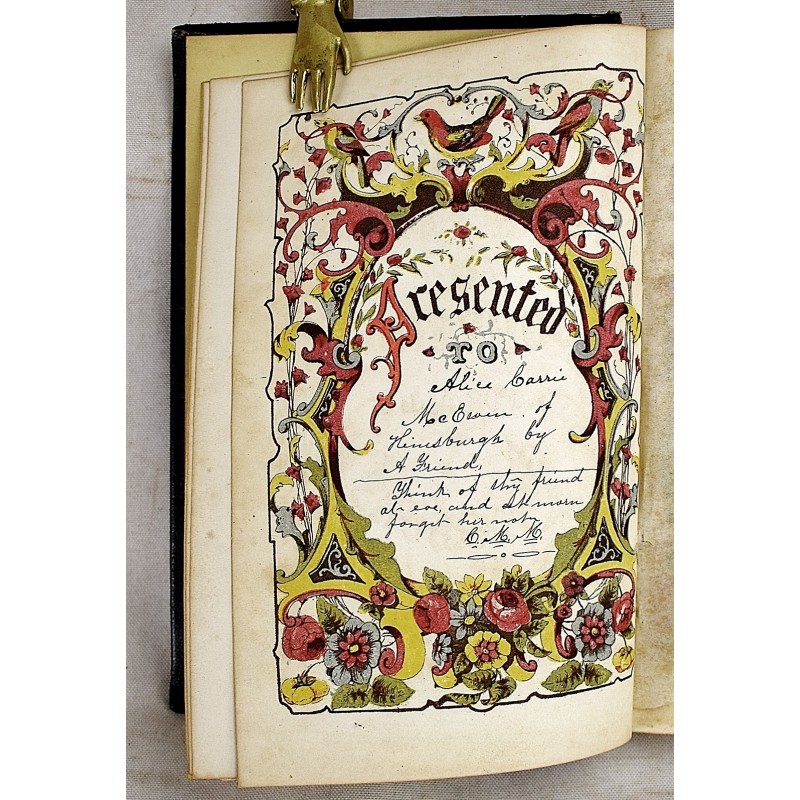 Presented
TO
Alice Carrie
McEwen of
Hinesburgh by
A Friend,
Think of thy friend
at eve, and at morn
forget her not,
C. M. M.